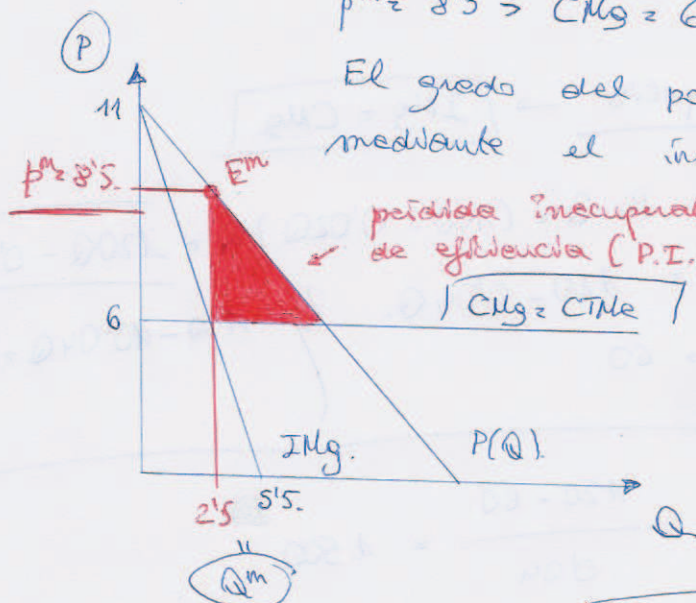 pᵐ = 8'5 > CMg = 6
El grado del
mediante el
P
11
pᵐ = 8'5.
Eᵐ
pérdida
de eficiencia (P.I.
CMg = CTMe
6
IMg.
P(Q).
2'5
5'5.
Q
"
Qᵐ